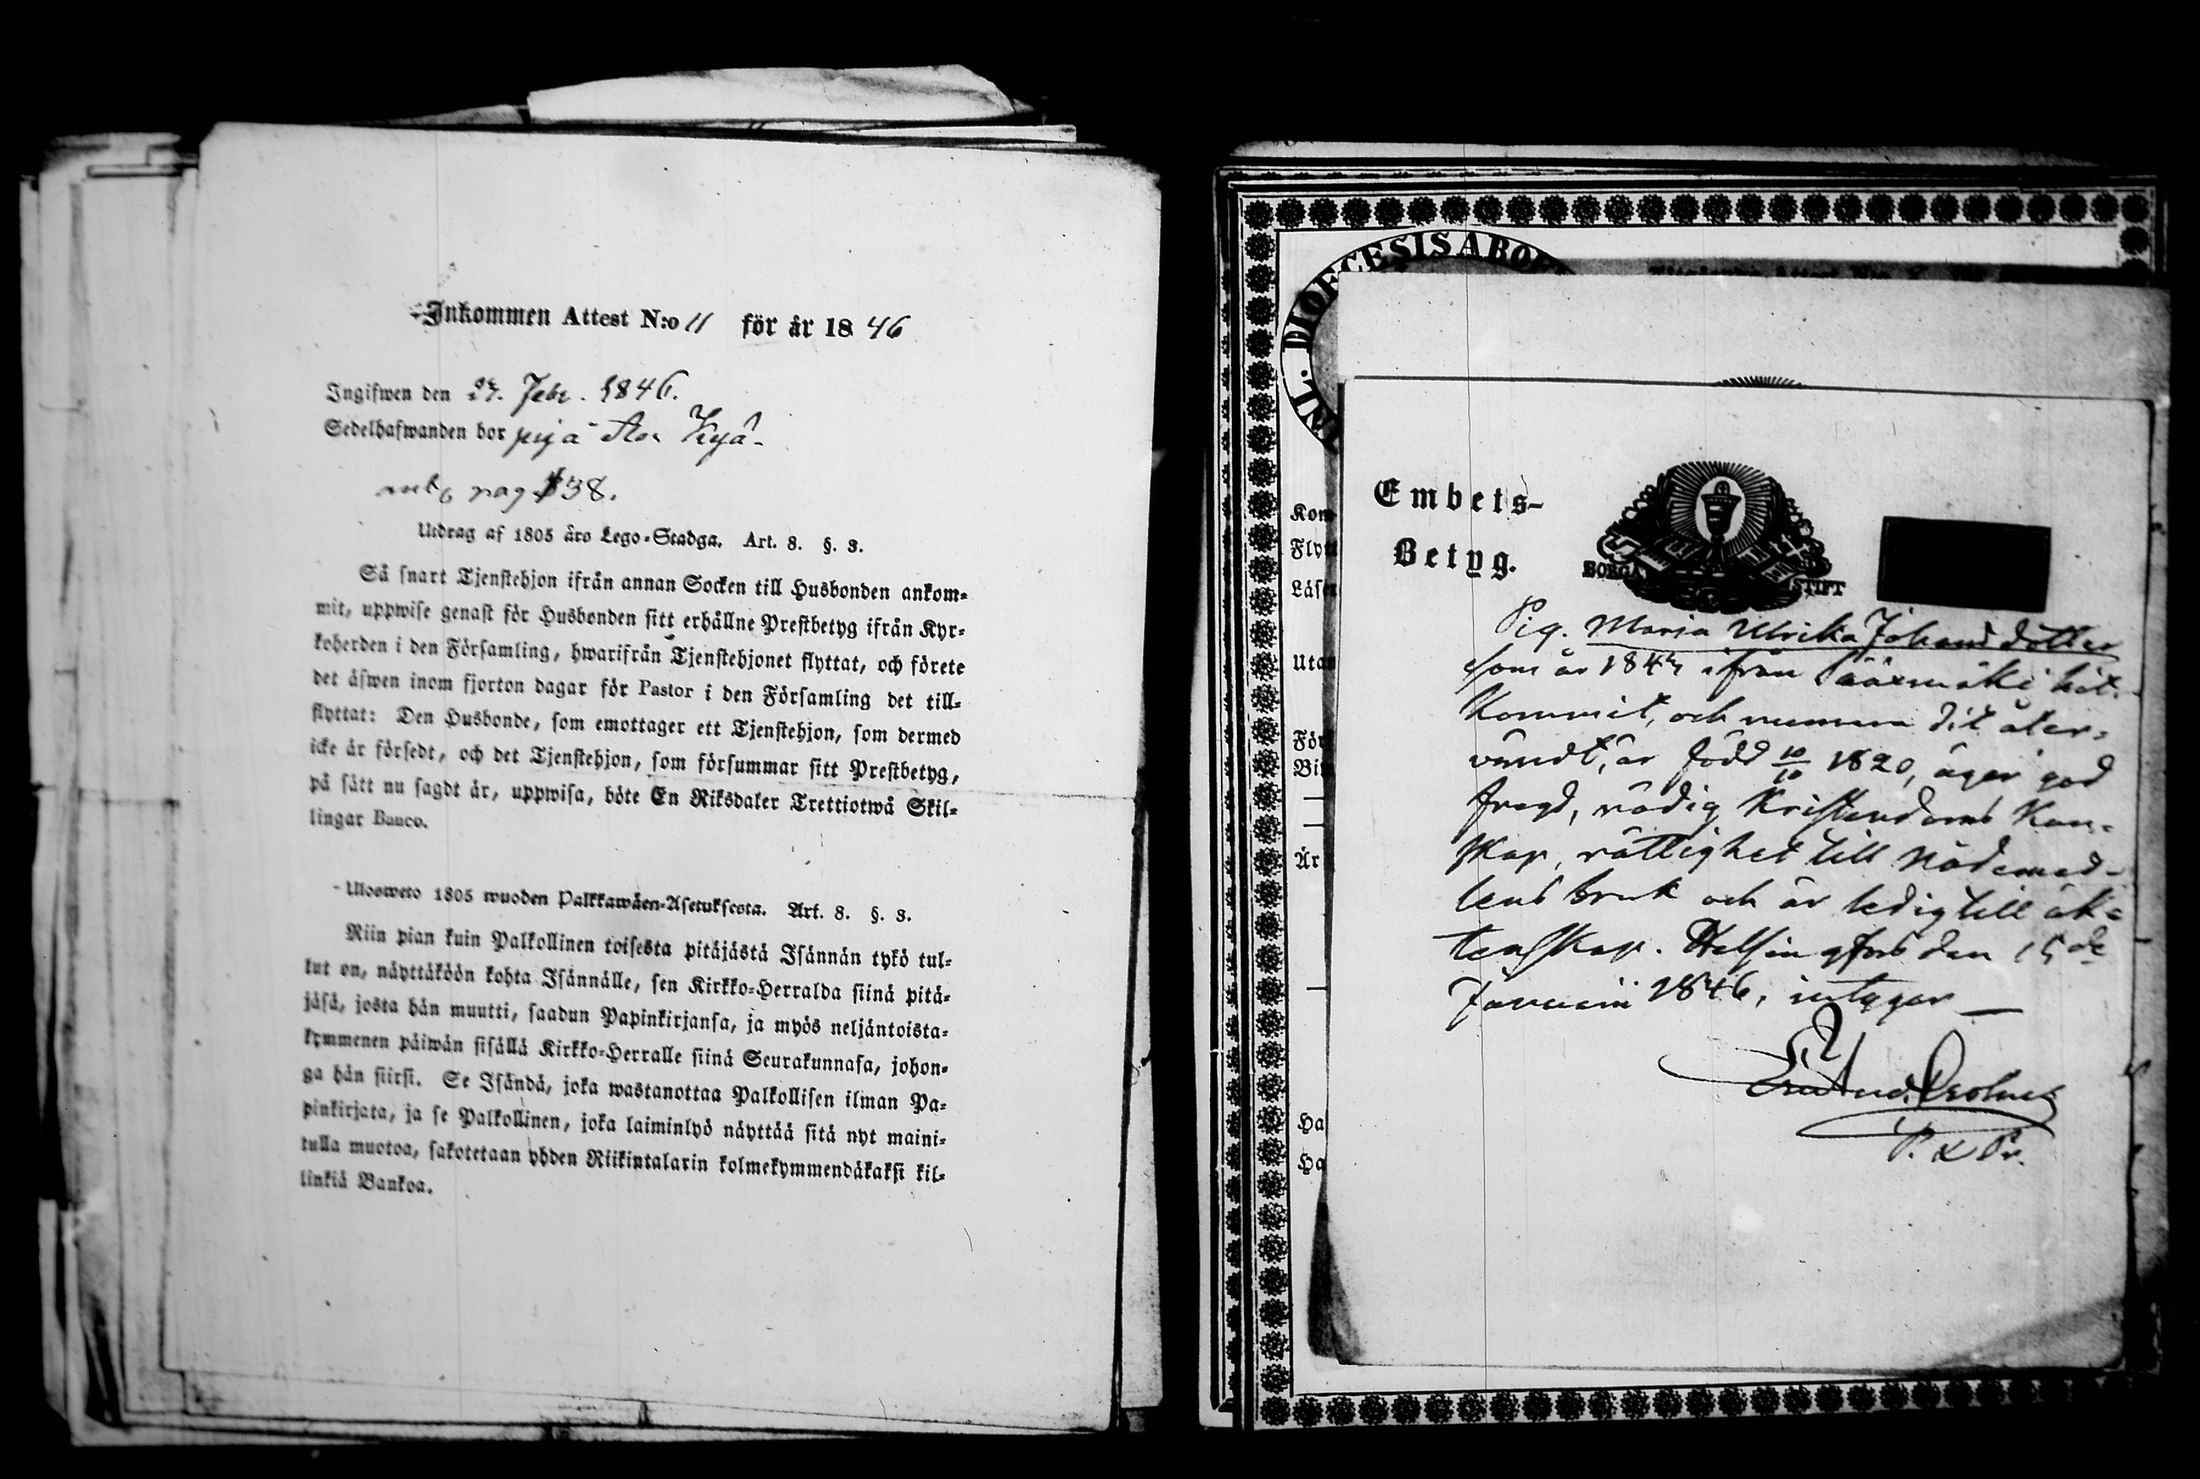 Inkommen Attest N:o 11 för år 1846
Ingifwen den 24. Febr. 1846.
Sedelhafwanden bor
pag 38.
Utdrag af 1805 års Lego-Stadga. Art. 8. §. 3.
Så snart Tjenstehjon ifrån annan Socken till Husbonden ankom-
mit, uppwise genast för Husbonden sitt erhållne Prestbetyg ifrån Kyr-
koherden i den Församling, hwarifrån Tjenstehjonet flyttat, och förete
det äfwen inom fjorton dagar för Pastor i den Församling det till-
flyttat: Den Husbonde, som emottager ett Tjenstehjon, som dermed
icke är försedt, och det Tjenstehjon, som försummar sitt Prestbetyg,
på sätt nu sagdt är, uppwisa, böte En Riksdaler Trettiotwå Skil-
lingar Banco.
Ulosweto 1805 wuoden Palkkawäen-Asetuksesta. Art. 8. §. 3.
Niin pian kuin Palkollinen toisesta pitäjästä Isännän tykö tul-
lut on, näyttäköön kohta Isännälle, sen Kirkko-Herralda siinä pitä-
jäsä, josta hän muutti, saadun Papinkirjansa, ja myös neljäntoista-
kymmenen päiwän sisällä Kirkko-Herralle siinä Seurakunnasa, johon-
ga hän siirsi. Se Isändä, joka wastanottaa Palkollisen ilman Pa-
pinkirjata, ja se Palkollinen, joka laiminlyö näyttää sitä nyt maini-
tulla muotoa, sakotetaan yhden Riikintalarin kolmekymmendäkaksi kil-
linkiä Bankoa.
INL. DIOECESIS ABOE
Kom
Flytt
Läser
Utan
För
Bi
Är
Ha
Ha
Embets-
Betyg.
BORGÅ STIFT
Pig. Maria Ulrika Johansdotter
som år 184 ifrån Sääxmäki hit
kommit, och numera dit åter-
vändt, är född 10/10 1820, äger god
fregd, nödig Kristendoms Kun-
skap, rättighet till Nådemed-
lens bruk och är ledig till äk-
tenskap. Helsingfors den 15de
Januarii 1846, intygar
P.